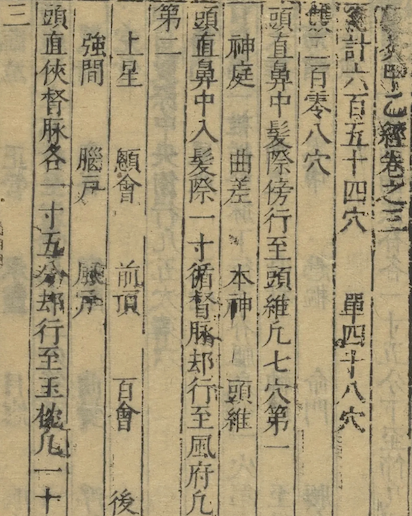 甲乙經卷之三
總計六百五十四穴　單四十八穴
雙三百零八穴
頭直鼻中髮際傍行至頭維凡七穴第一
神庭　曲差　本神　頭維
頭直鼻中入髮際一寸循督脉却行至風府凡
第二
上星　顖會　前頂　百會　後
強間　腦戶　風府
頭直俠督脉各一寸五分却行至玉枕凡一十
三